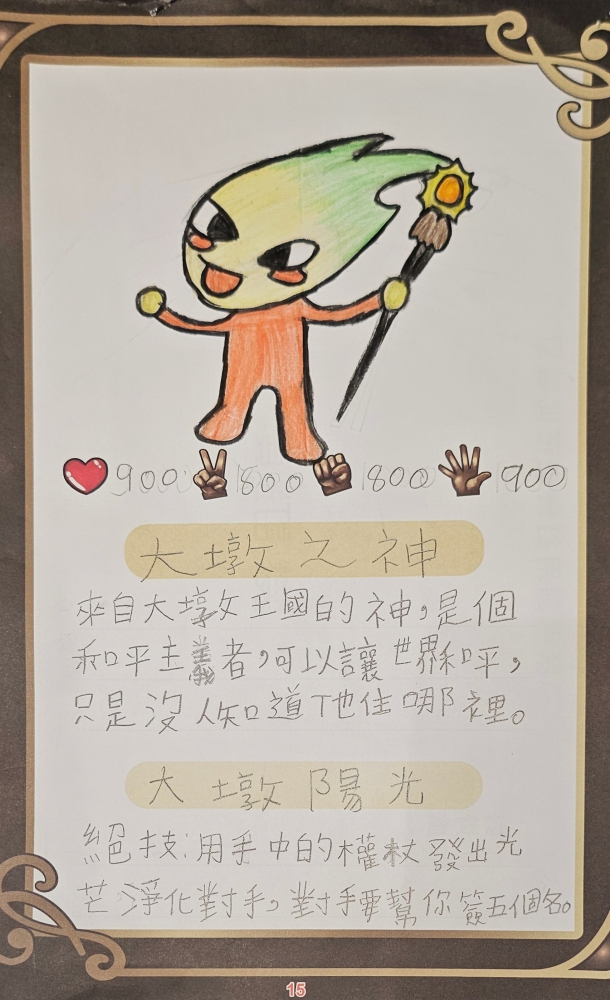 900 1800 1800 900
大墩之神
來自大墩王國的神，是個
和平主義者，可以讓世界和平，
只是沒人知道他住哪裡。
大墩陽光
絕技：用手中的權杖發出光
芒淨化對手，對手要幫你簽五個名。
15